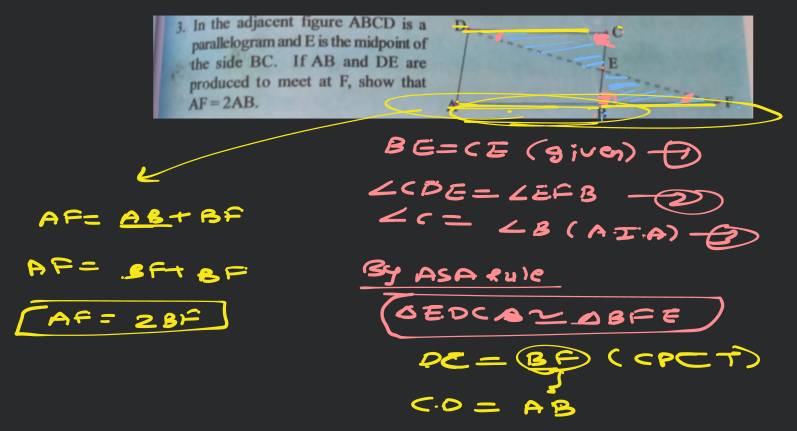 3. In the adjacent figure ABCD is a
parallelogram and E is the midpoint of
the side BC. If AB and DE are
produced to meet at F, show that
AF=2AB.
D
C
E
A
F
BE=CE (given) —①
∠CDE=∠EFB —②
∠C= ∠B (A.I.A) —③
By ASA Rule
∆EDC ≅ ∆BFE
DC = BF (CPCT)
C.D = AB
AF= AB+BF
AF= BF+BF
AF= 2BF